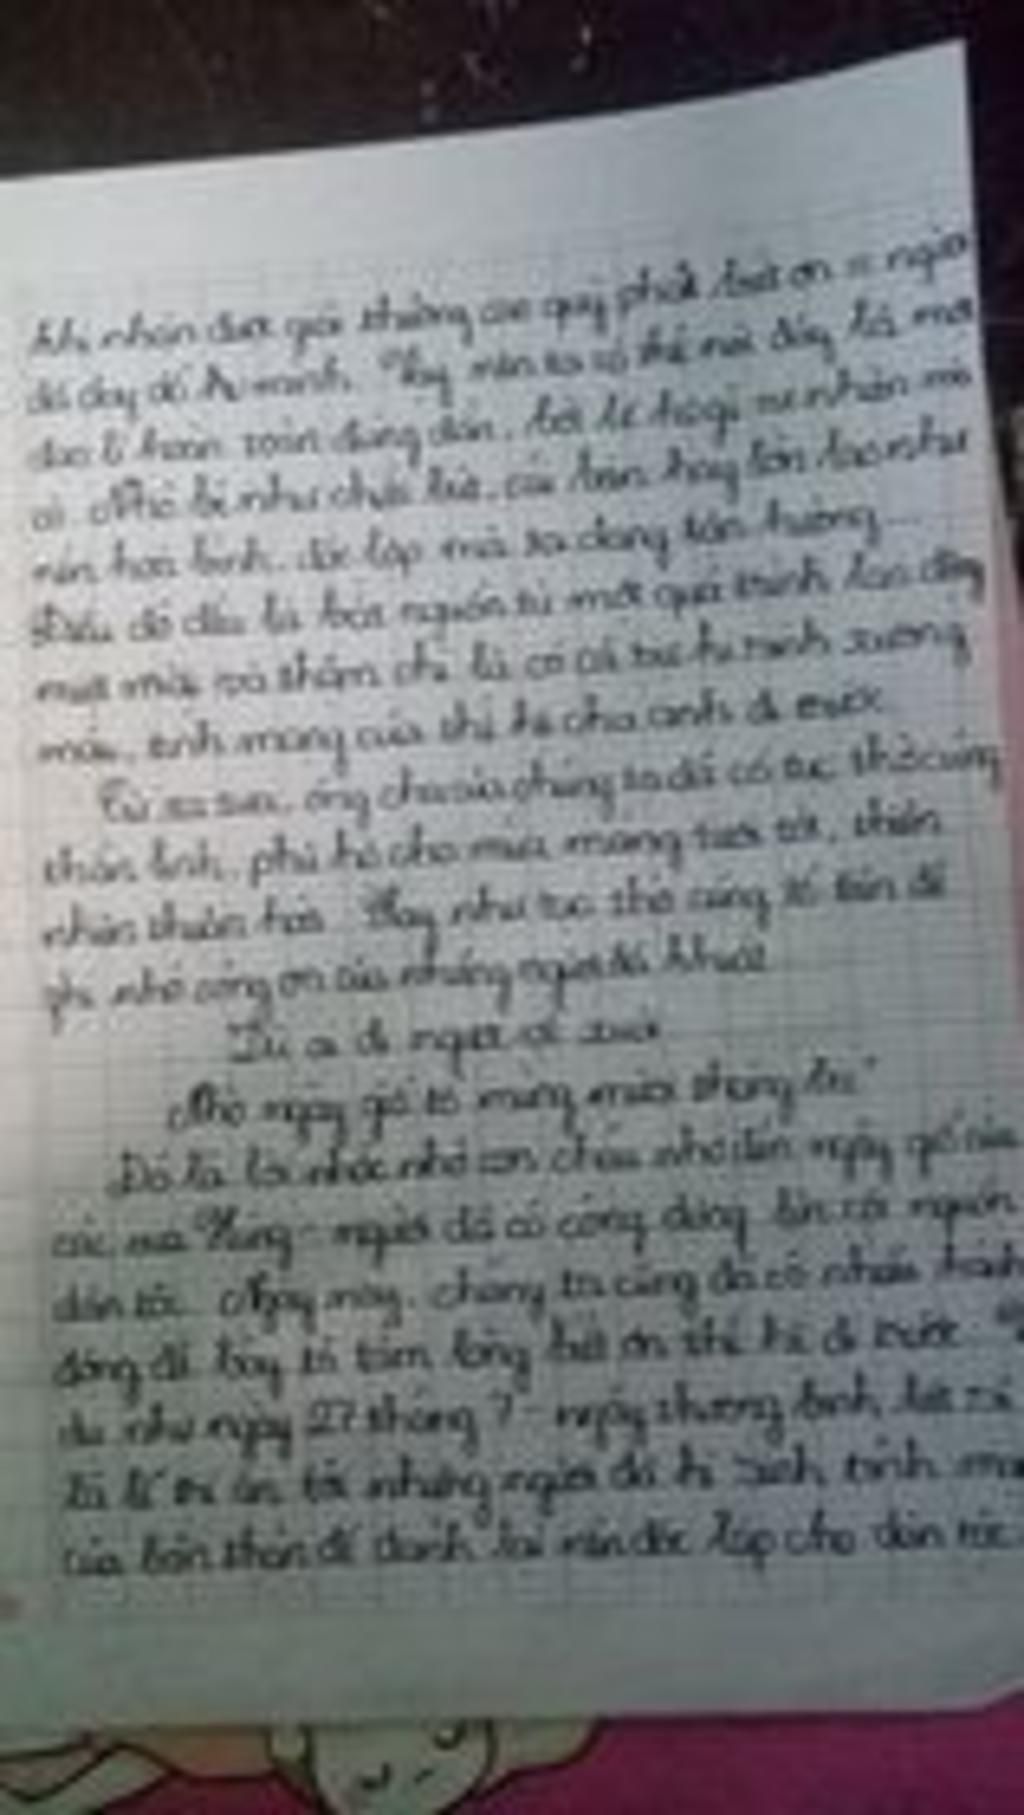 khi nhận được giải thưởng cao quý phải biết ơn người
đã dạy dỗ mình. Vậy nên ta có thể nói đây là một
đạo lí hoàn toàn đúng đắn, bởi lẽ
có. Nhỏ bé như chiếc bút, cái bàn hay lớn lao như
nền hoà bình, độc lập mà ta đang tận hưởng...
Điều đó đều là bắt nguồn từ một quá trình lao động
miệt mài và thậm chí là có cả sự hi sinh xương
máu, tính mạng của thế hệ cha anh đi trước.
Từ xa xưa, ông cha của chúng ta đã có tục thờ cúng
thần linh, phù hộ cho mùa màng tươi tốt, thiên
nhiên thuận hoà. Hay như tục thờ cúng tổ tiên để
ghi nhớ công ơn của những người đã khuất.
Dù ai đi ngược về xuôi
Nhớ ngày giỗ tổ mùng mười tháng ba"
Đó là lời nhắc nhở con cháu nhớ đến ngày giỗ của
các vua Hùng - người đã có công dựng lên cội nguồn
dân tộc. Ngày nay, chúng ta cũng đã có nhiều hành
động để bày tỏ tấm lòng biết ơn thế hệ đi trước. Ví
dụ như ngày 27 tháng 7 - ngày thương binh liệt sĩ
là để tri ân tới những người đã hi sinh tính mạng
của bản thân để dành lại nền độc lập cho dân tộc.